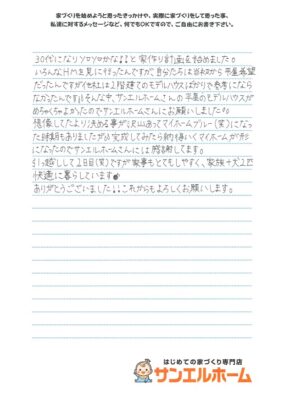 家づくりを始めようと思ったきっかけや、実際に家づくりをして思った事、
私達に対するメッセージなど、何でもOKですので、ご自由にお書き下さい。
30代になりソロソロかな!!と家作り計画を始めました。
いろんなHMを見に行ったんですが自分たちは当初から平屋希望
だったんですが他社は2階建てのモデルハウスばかりで参考になら
なかったです。そんな中、サンエルホームさんの平屋のモデルハウスが
めちゃくちゃよかったのでサンエルホームにお願いしました
想像してたより決める事が沢山あってマイホームブルー(笑)になっ
た時期もありましたが完成してみたら納得いくマイホームが形
になったのでサンエルホームさんには感謝してます。
引っ越しして2日目(笑)ですが家事もとてもしやすく、家族+犬2匹
快適に暮らしています
ありがとうございました!!これからもよろしくお願いします。
はじめての家づくり専門店
サンエルホーム